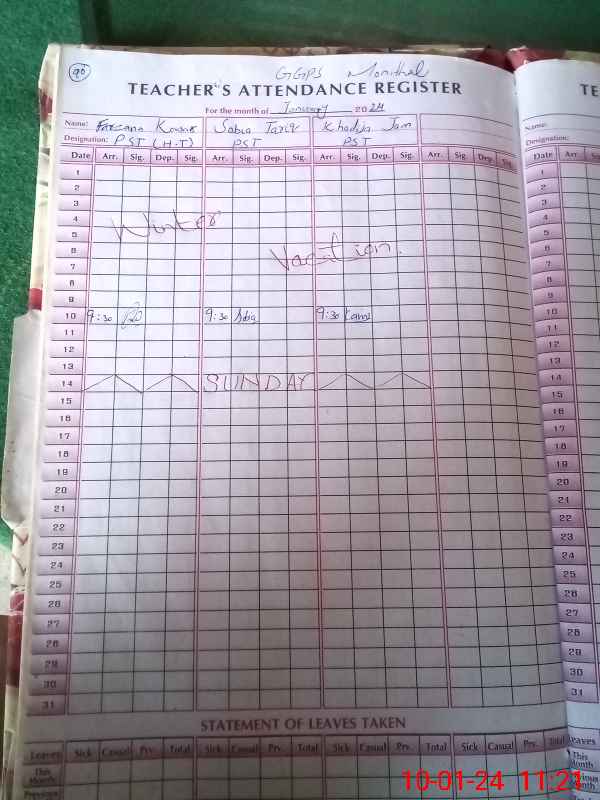 90
GGPS
TEACHER'S ATTENDANCE REGISTER
TE
For the month of January 2024
Name: Farzana Sabia Tariq Khadija Jam
Name:
Designation: PST (H-T) PST PST
Designation:
Date Arr. Sig. Dep. Sig. Arr. Sig. Dep. Sig. Arr. Sig. Dep. Sig. Arr. Sig. Dep. Sig.
Date Arr Sig.
1 1
2 2
3 3
4 Winter 4
5 5
6 Vacation. 6
7 7
8 8
9 9
10 9:30 9:30 Sabia 9:30 10
11 11
12 12
13 13
14 SUNDAY 14
15 15
16 16
17 17
18 18
19 19
20 20
21 21
22 22
23 23
24 24
25 25
26 26
27 27
28 28
29 29
30 30
31 31
STATEMENT OF LEAVES TAKEN
Leaves Sick Casual Prv. Total Sick Casual Prv. Total Sick Casual Prv. Total Sick Casual Prv. Total
Leaves
This Month
This Month
Previous
10-01-24 11:21